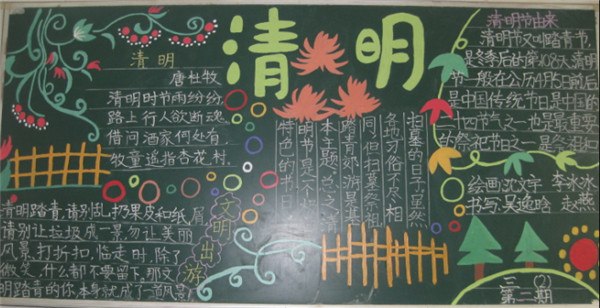 清明
清明
唐杜牧
清明时节雨纷纷,
路上行人欲断魂
借问酒家何处有,
牧童遥指杏花村.
清明踏青,请别乱扔果皮和纸屑
请别让垃圾成一景勿让美丽
风景打折扣,临走时,除了
微笑,什么都不要留下,那文
明踏青的你,本身就成了一道风景
文明出游
扫墓的日子,虽然
各地习俗不尽相
同,但扫墓祭祖,
踏青郊游是基
本主题,总之清
明节是一个
特色的节日
清明节由来
清明节又叫踏青节,
是冬季后的第108天清明
节一般在公历4月5号前后
是中国传统节日是中国的
二十四节气之一也是最重要
的祭祀节日之一是祭祖和
绘画:沈文宇 李冰冰
书写:吴逸晗 赵燕
三(2)
第二期